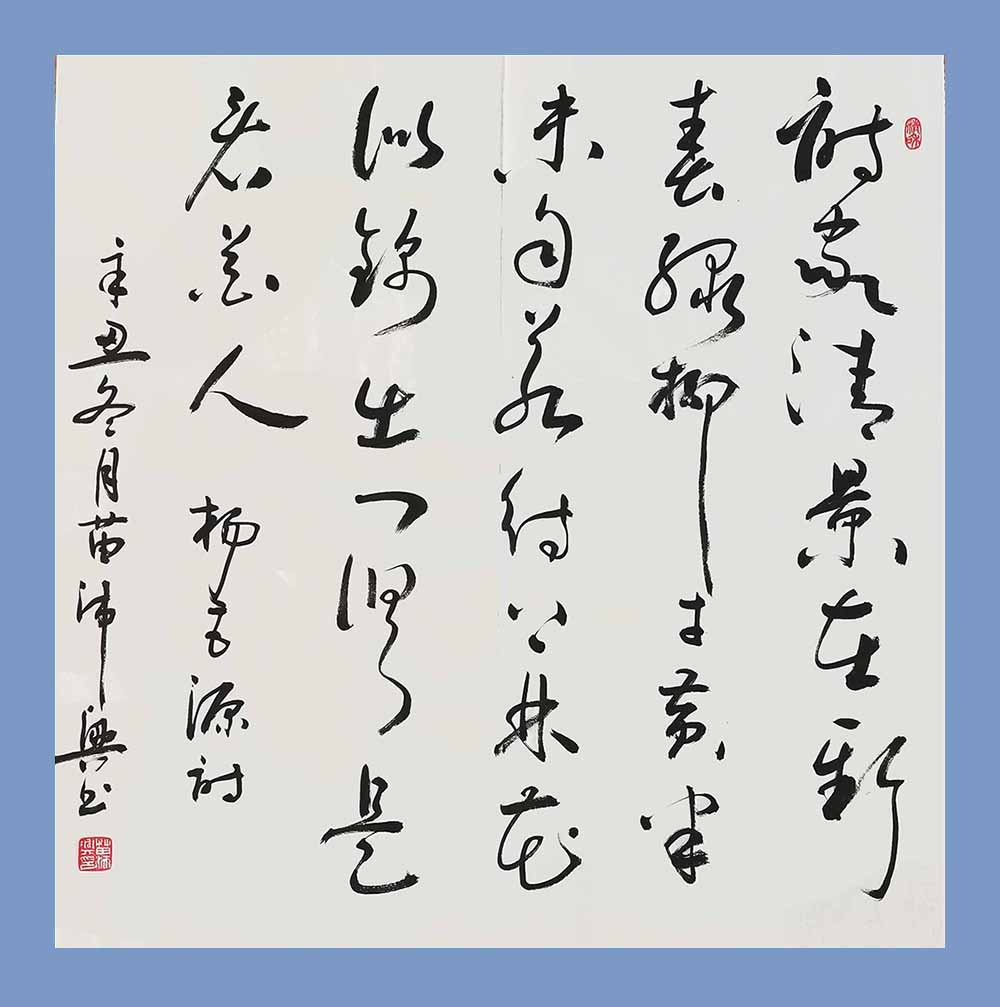 诗家清景在新
春绿柳才黄半
未匀若待上林花
似锦出门俱是
看花人 杨巨源诗
辛丑冬月苗沛興书